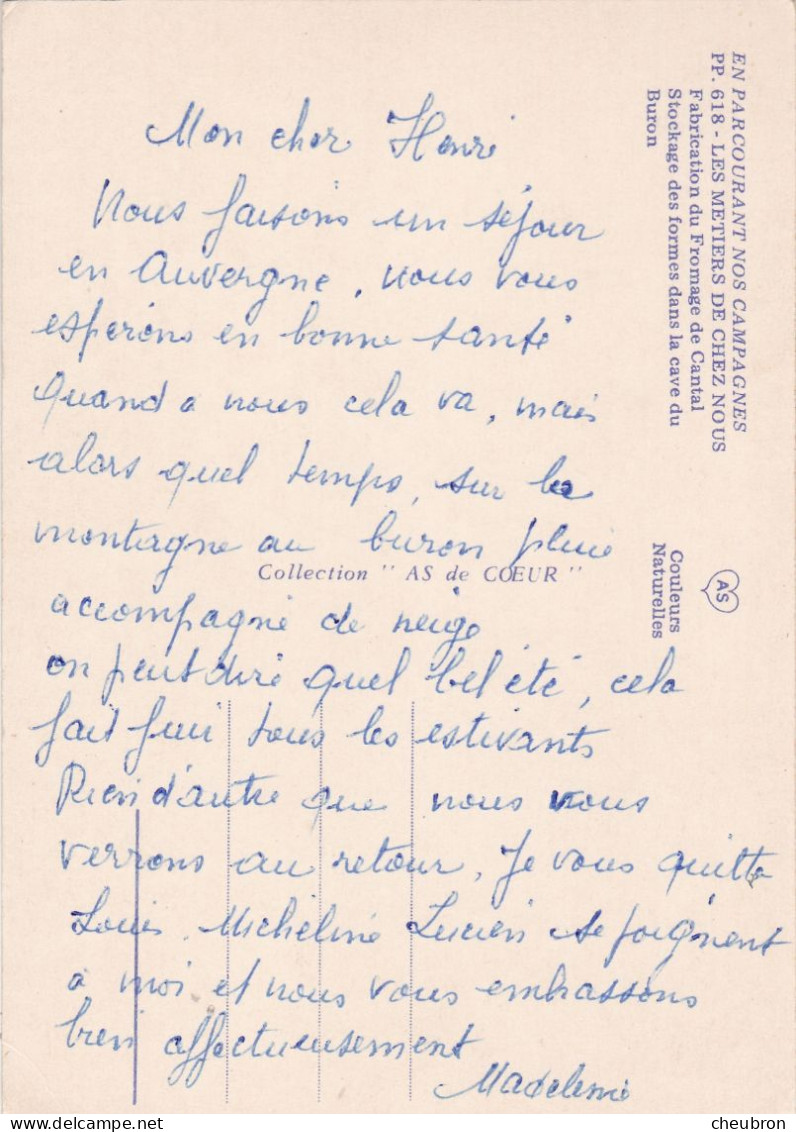 EN PARCOURANT NOS CAMPAGNES
PP. 618 - LES METIERS DE CHEZ NOUS
Fabrication du Fromage de Cantal
Stockage des formes dans la cave du
Buron
Couleurs
Naturelles
AS
Mon cher Henri
Nous faisons un séjour
en Auvergne, nous vous
espérons en bonne santé
quand a nous cela va, mais
alors quel temps, sur la
montagne au buron pluie
Collection " AS de COEUR "
accompagné de neige
on peut dire quel bel été, cela
fait fuir tous les estivants
Rien d'autre que nous vous
verrons au retour, Je vous quitte
Louis, Micheline Lucien se joignent
a moi et nous vous embrassons
bien affectueusement
Madeleine
cheubron
www.delcampe.net